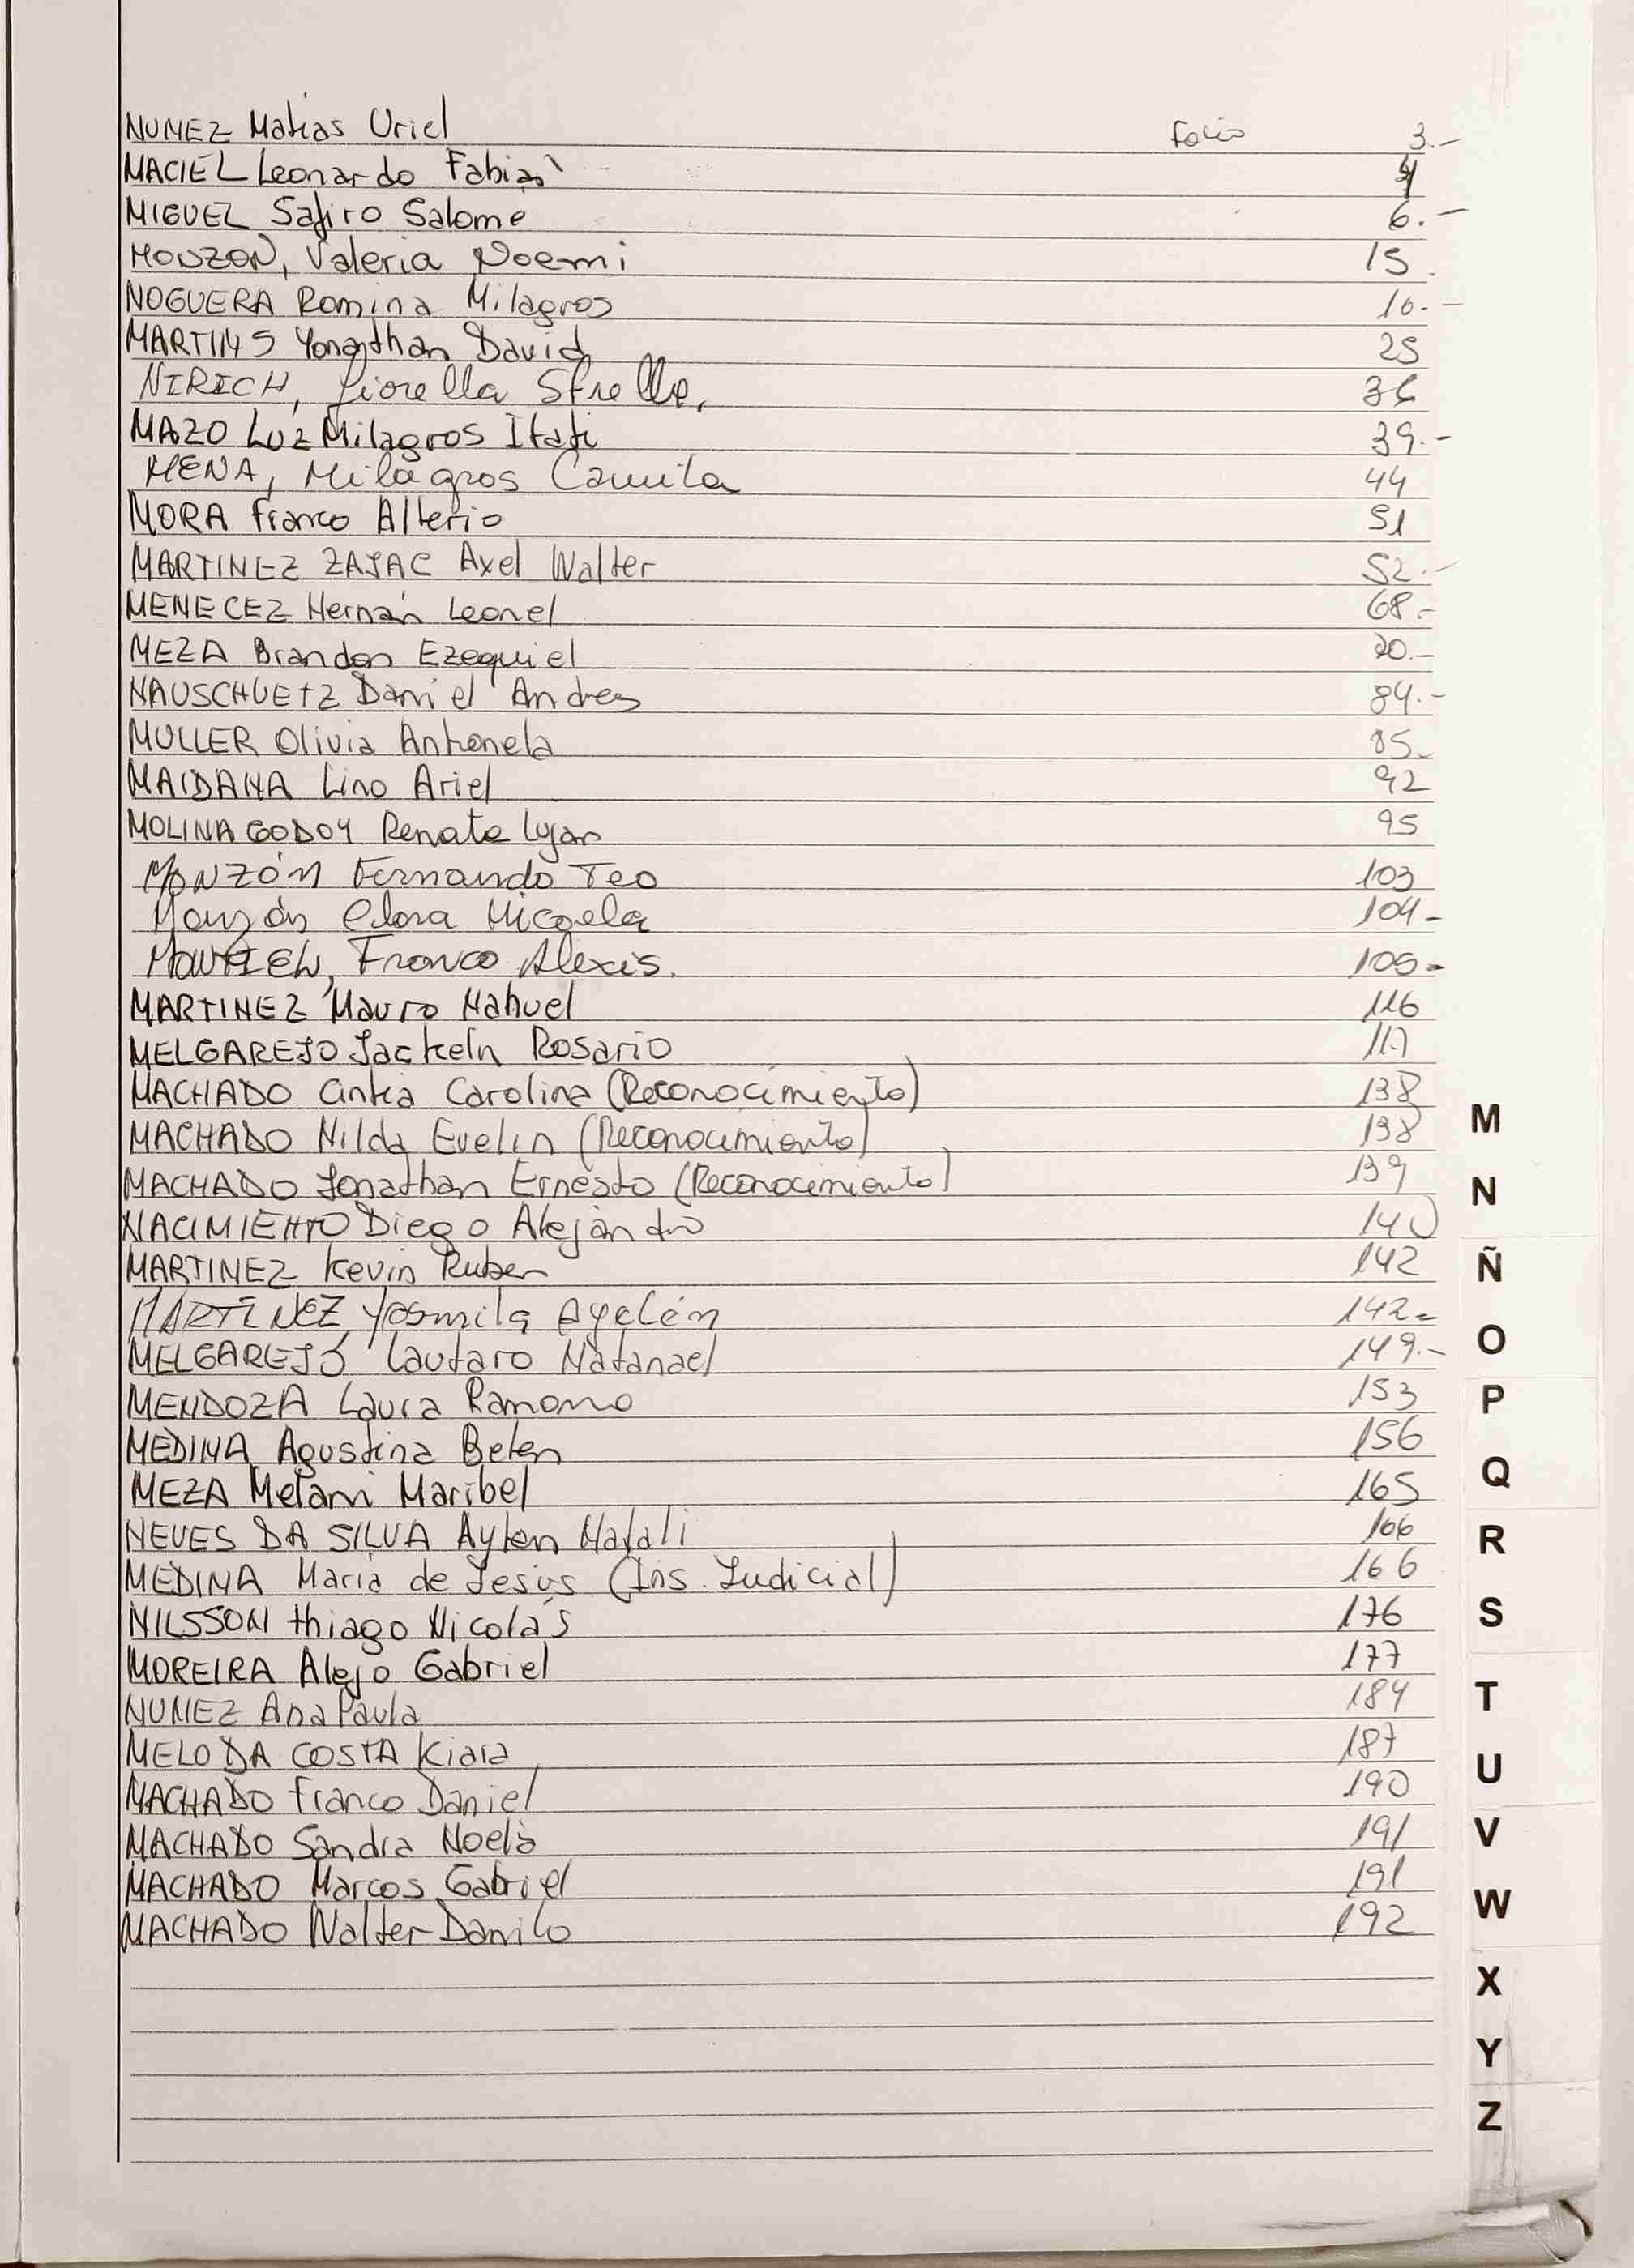 NUNEZ Matias Uriel folio 3.-
MACIEL Leonardo Fabian 4
MIGUEL Safiro Salome 6.-
MONZON, Valeria Noemi 15.
NOGUERA Romina Milagros 16.-
MARTINS Yonathan David 25
NIRICH, fiorella Strella, 36
MAZO Luz Milagros Itati 39.-
MENA, Milagros Camila 44
MORA Franco Alterio 51
MARTINEZ ZAJAC Axel Walter 52.-
MENECEZ Hernán Leonel 68.-
MEZA Brandon Ezequiel 70.-
NAUSCHUETZ Daniel Andres 84.-
MULLER Olivia Antonela 85-
MAIDANA Lino Ariel 92
MOLINA GODOY Renata Lujan 95
MONZÓN Fernando Teo 103
Monzón Clara Micaela 104-
MONTIEL, Franco Alexis. 105-
MARTINEZ Mauro Nahuel 116
MELGAREJO Jackeln Rosario 117
MACHADO Cintia Carolina (Reconocimiento) 138
MACHADO Nilda Evelin (Reconocimiento) 138
MACHADO Jonathan Ernesto (Reconocimiento) 139
NACIMIENTO Diego Alejandro 140
MARTINEZ Kevin Ruben 142
MARTINEZ, Yasmila Ayelén 142-
MELGAREJO Lautaro Natanael 149.-
MENDOZA Laura Ramona 153
MEDINA Agustina Belen 156
MEZA Melani Maribel 165
NEVES DA SILVA Aylen Natali 166
MEDINA Maria de Jesús (Ins. Judicial) 166
NILSSON thiago Nicolás 176
MOREIRA Alejo Gabriel 177
NUNEZ Ana Paula 184
MELO DA COSTA Kiara 187
MACHADO Franco Daniel 190
MACHADO Sandra Noelia 191
MACHADO Marcos Gabriel 191
MACHADO Walter Danilo 192
M
N
Ñ
O
P
Q
R
S
T
U
V
W
X
Y
Z